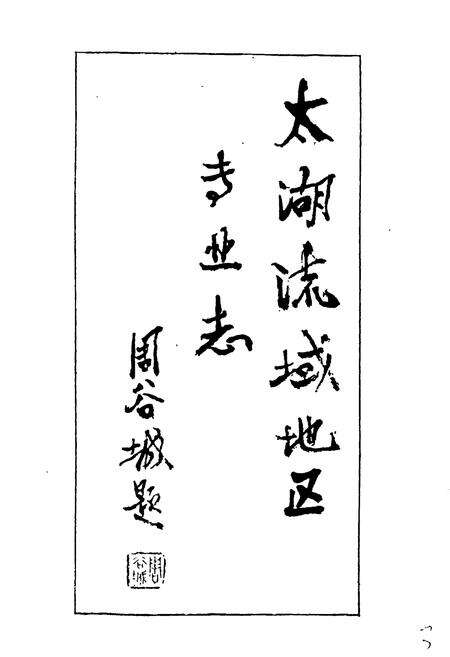 太湖流域地区
专业志
周谷城题